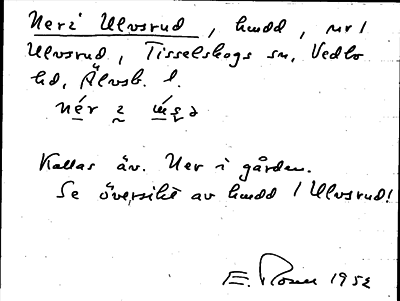 Ner i Ulvsrud, hmdd, nr 1
Ulvsrud, Tisselskogs sn, Vedbo
hd, Älvsb. l.
nér
Kallas äv. Ner i gården.
Se översikt av hmdd / Ulvsrud!
E. Rosen 1952